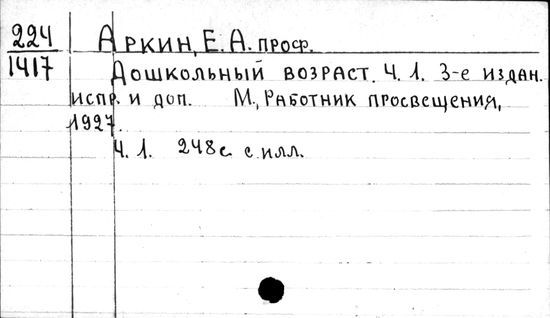 224 Аркин, Е. А. проф.
1417 Дошкольный возраст. Ч. 1. 3-е издан.
испр. и доп. М., Работник просвещения,
1927.
Ч. 1. 248 с. с илл.